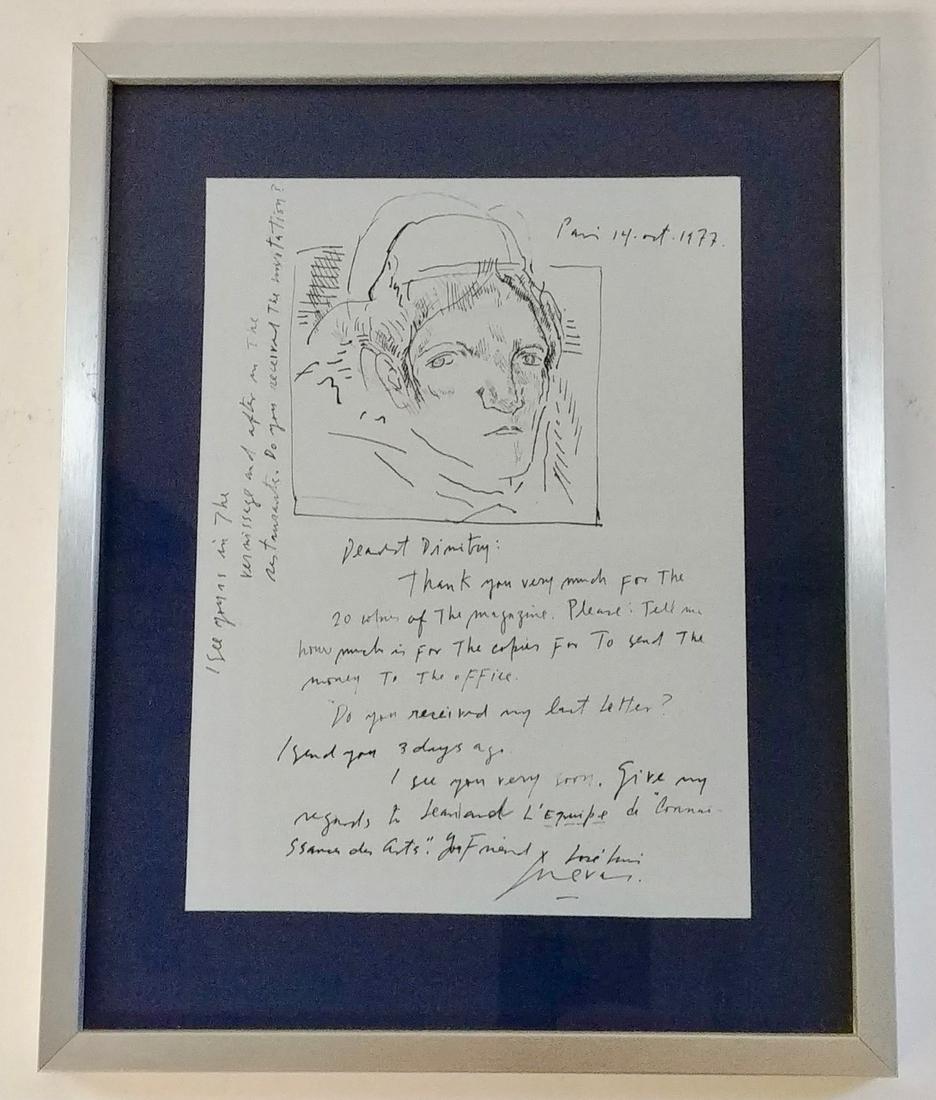 Paris 14.oct.1977.
Dearest Dimitry:
Thank you very much For The
20 of The magazine. Please: Tell me
how much is For The copies For To send The
money To The oFFice.
Do you received my last Letter?
I send you 3 days ago.
I see you very soon. Give my
regards to L'Equipe de "Connai-
ssance des Arts". Your Friend
José Luis
Cuevas.
I see you in The
vernissage and after in The
restaurante. Do you received The invitation?